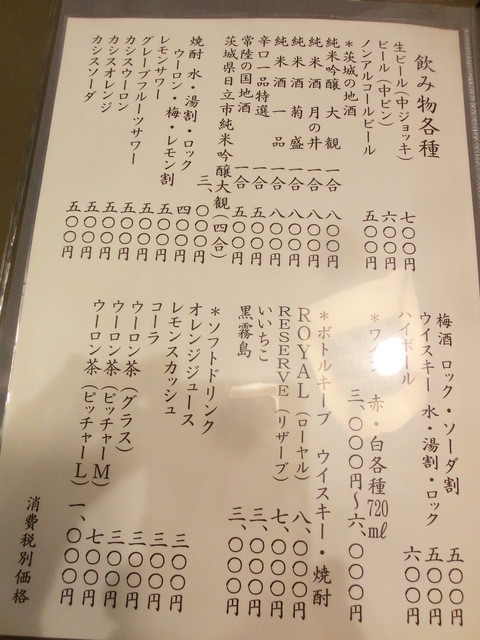 飲み物各種
生ビール(中ジョッキ) 七〇〇円
ビール(中ビン) 六〇〇円
ノンアルコールビール 五〇〇円
*茨城の地酒
純米吟醸 大観 一合 八〇〇円
純米酒 月の井 一合 八〇〇円
純米酒 菊盛 一合 八〇〇円
純米酒 一品 一合 八〇〇円
辛口一品特選 一合 五〇〇円
常陸の国地酒 一合 五〇〇円
茨城県日立市純米吟醸大観(四合) 三、〇〇〇円
焼酎 水・湯割・ロック 四〇〇円
ウーロン・梅・レモン割 五〇〇円
レモンサワー 五〇〇円
グレープフルーツサワー 五〇〇円
カシスウーロン 五〇〇円
カシスオレンジ 五〇〇円
カシスソーダ 五〇〇円
梅酒 ロック・ソーダ割 五〇〇円
ウイスキー 水・湯割・ロック 五〇〇円
ハイボール 六〇〇円
*ワイン 赤・白各種720mℓ
三、〇〇〇円〜六、〇〇〇円
*ボトルキープ ウイスキー・焼酎
ROYAL(ローヤル) 八、〇〇〇円
RESERVE(リザーブ) 七、〇〇〇円
いいちこ 三、〇〇〇円
黒霧島 三、〇〇〇円
*ソフトドリンク
オレンジジュース 三〇〇円
レモンスカッシュ 三〇〇円
コーラ 三〇〇円
ウーロン茶(グラス) 三〇〇円
ウーロン茶(ピッチャーM) 七〇〇円
ウーロン茶(ピッチャーL) 一、〇〇〇円
消費税別価格